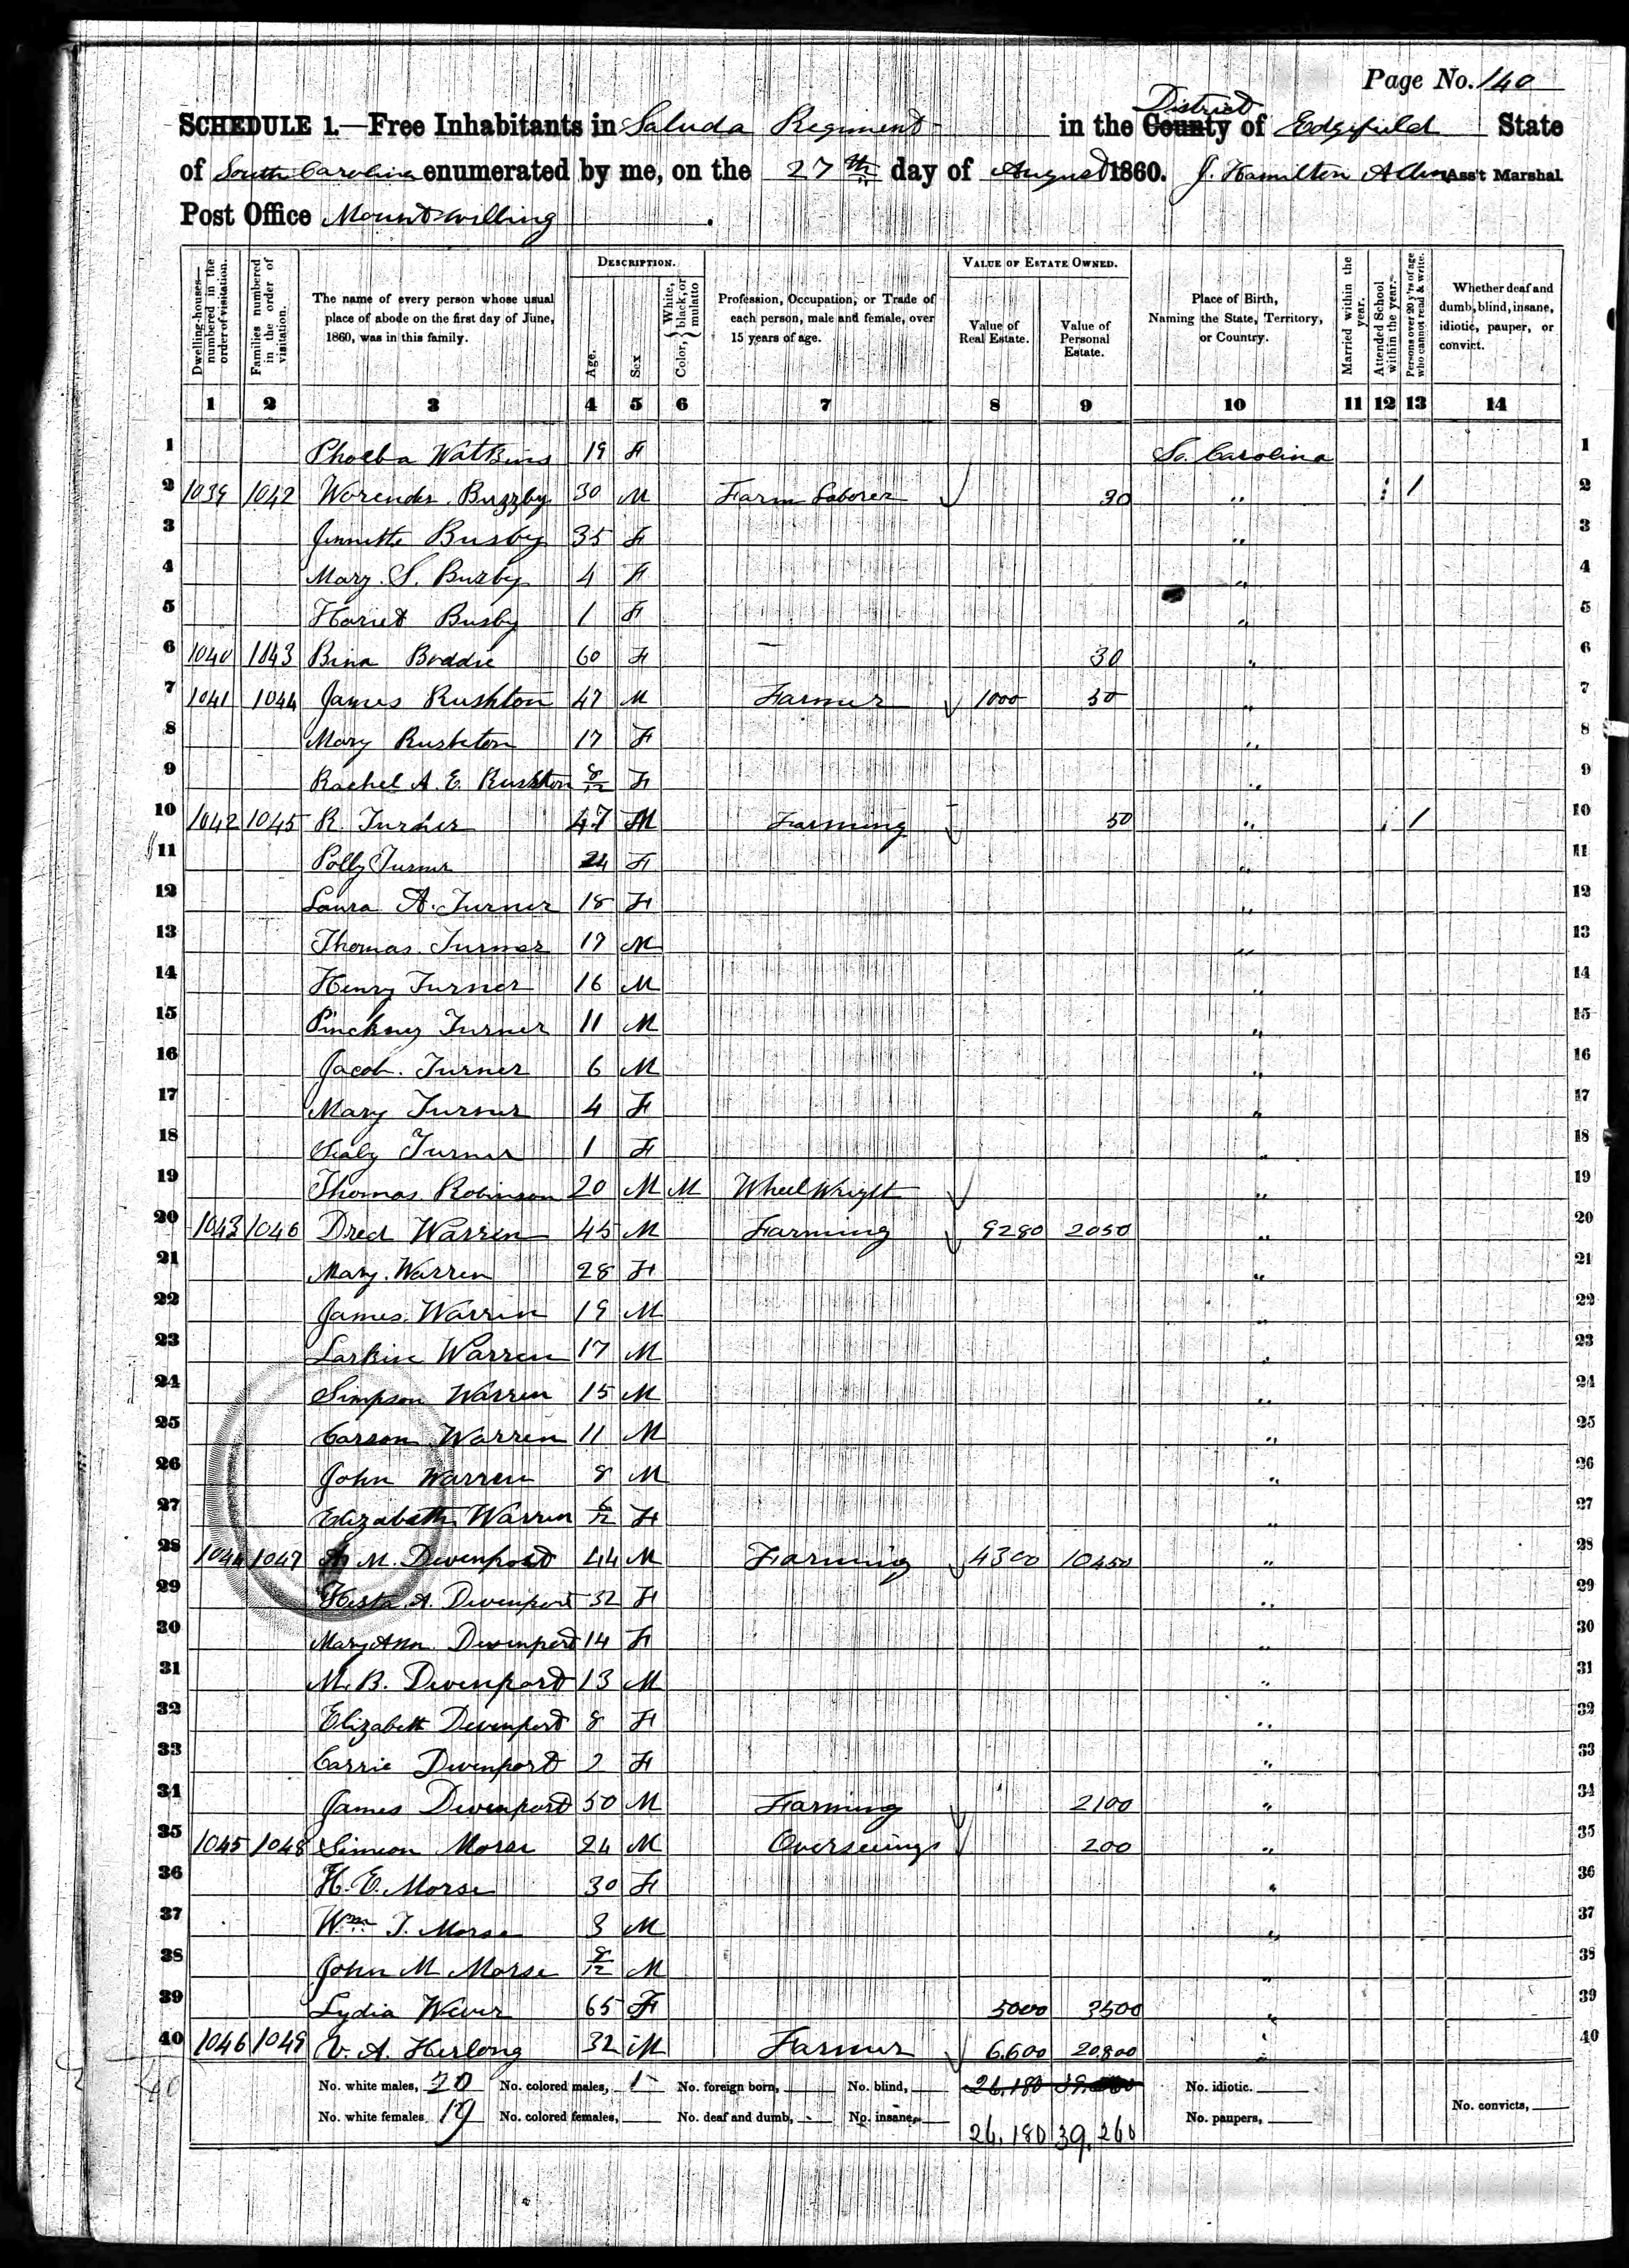 Page No. 140
SCHEDULE 1.—Free Inhabitants in Saluda Regiment in the County District of Edgefield State
of South Carolina enumerated by me, on the 27th day of August 1860. J. Hamilton Allen Ass't Marshal
Post Office Mount Willing.
Dwelling-houses—numbered in the order of visitation.
Families numbered in the order of visitation.
The name of every person whose usual place of abode on the first day of June, 1860, was in this family.
DESCRIPTION.
Age.
Sex
Color, { White, black, or mulatto
Profession, Occupation, or Trade of each person, male and female, over 15 years of age.
VALUE OF ESTATE OWNED.
Value of Real Estate.
Value of Personal Estate.
Place of Birth, Naming the State, Territory, or Country.
Married within the year.
Attended School within the year.
Persons over 20 y'rs of age who cannot read & write.
Whether deaf and dumb, blind, insane, idiotic, pauper, or convict.
1 2 3 4 5 6 7 8 9 10 11 12 13 14
1 Phoeba Watkins 19 F So. Carolina 1
2 1039 1042 Buzzby 30 M Farm Laborer 30 " / 2
3 Jennette Busby 35 F " 3
4 Mary S. Buzby 4 F " 4
5 Hariet Busby 1 F " 5
6 1040 1043 Bina Boddie 60 F — 30 " 6
7 1041 1044 James Rushton 47 M Farmer 1000 50 " 7
8 Mary Rushton 17 F " 8
9 Rachel A. E. Rushton 8/12 F " 9
10 1042 1045 R. Turner 47 M Farming 50 " / 10
11 Polly Turner 24 F " 11
12 Laura A. Turner 18 F " 12
13 Thomas Turner 17 M " 13
14 Henry Turner 16 M " 14
15 Pinckney Turner 11 M " 15
16 Jacob Turner 6 M " 16
17 Mary Turner 4 F " 17
18 Turner 1 F " 18
19 Thomas Robinson 20 M M Wheel Wright " 19
20 1043 1046 Dred Warren 45 M Farming 9280 2050 " 20
21 Mary Warren 28 F " 21
22 James Warren 19 M " 22
23 Larkin Warren 17 M " 23
24 Simpson Warren 15 M " 24
25 Carson Warren 11 M " 25
26 John Warren 8 M " 26
27 Elizabeth Warren 6/12 F " 27
28 1044 1047 M. Devenport 44 M Farming 4300 10450 " 28
29 Hesta A. Devenport 32 F " 29
30 Mary Ann Devenport 14 F " 30
31 M. B. Devenport 13 M " 31
32 Elizabeth Devenport 8 F " 32
33 Carrie Devenport 2 F " 33
34 James Devenport 50 M Farming 2100 " 34
35 1045 1048 Simeon Morse 24 M Overseeing 200 " 35
36 H. E. Morse 30 F " 36
37 Wm. T. Morse 3 M " 37
38 John M Morse 8/12 M " 38
39 Lydia Wever 65 F 5000 3500 " 39
40 1046 1049 V. A. Herlong 32 M Farmer 6.600 20800 " 40
No. white males, 20 No. colored males, 1 No. foreign born, No. blind, 26,180 No. idiotic.
No. white females, 19 No. colored females, No. deaf and dumb, No. insane, 26,180 39,260 No. paupers, No. convicts,